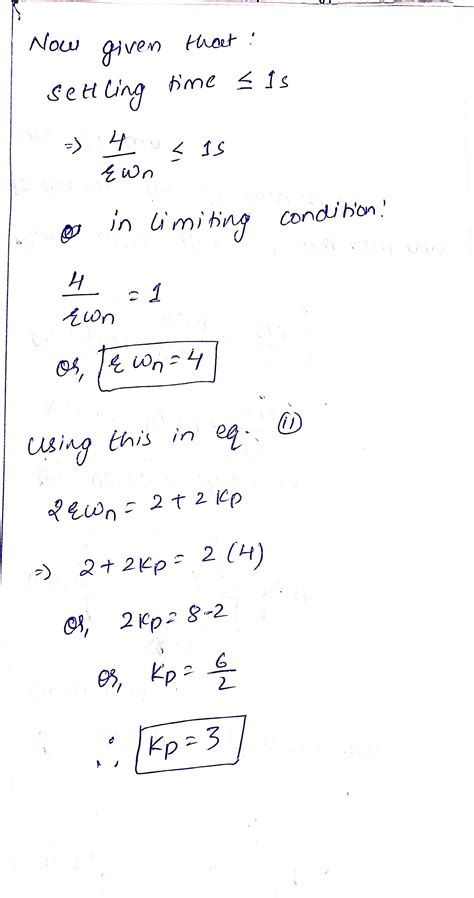 Now given that:
settling time ≤ 1s
⇒ 4/ξωn ≤ 1s
in limiting condition:
4/ξωn = 1
or, ξωn = 4
using this in eq. (ii)
2ξωn = 2 + 2Kp
⇒ 2 + 2Kp = 2(4)
or, 2Kp = 8-2
or, Kp = 6/2
∴ Kp = 3